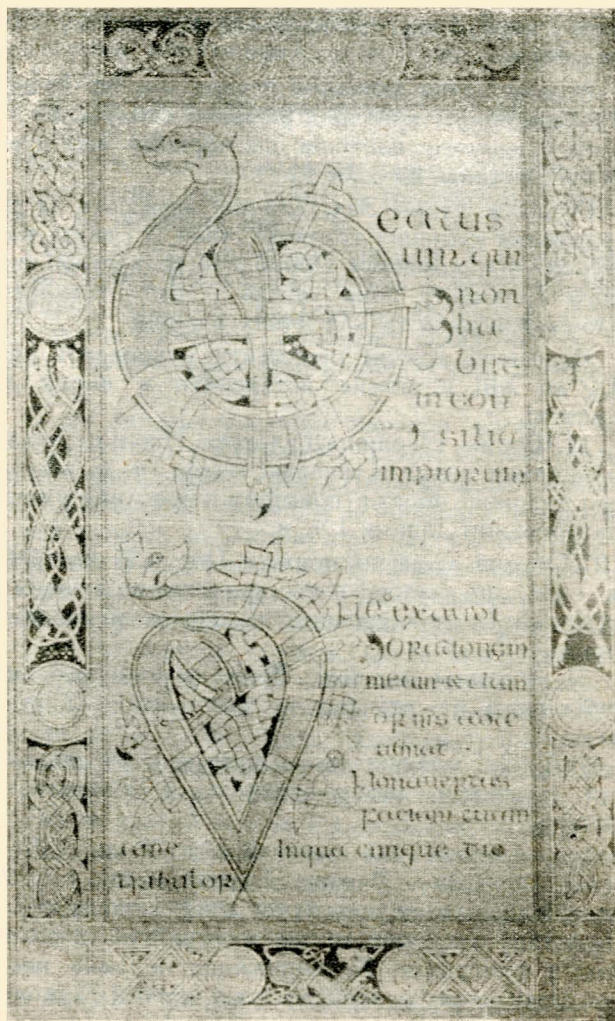 eatus
uir qui
non
ha
biit
in con
silio
impiorum
ne exaudi
orationem
meam et clam
ueniat
Non auertas
faciem tuam
ame In qua cunque die
tribulor